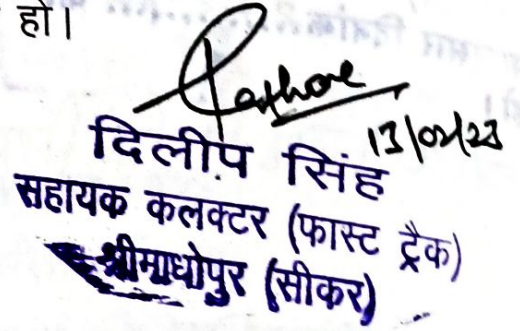 हो।
13/02/23
दिलीप सिंह
सहायक कलक्टर (फास्ट ट्रैक)
श्रीमाधोपुर (सीकर)